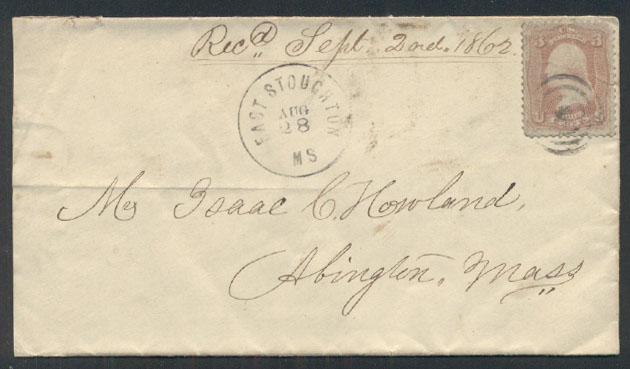 Rec'd Sept. 2nd. 1862.
EAST STOUGHTON
AUG
28
MS
3 3
Mr. Isaac C. Howland,
Abington, Mass